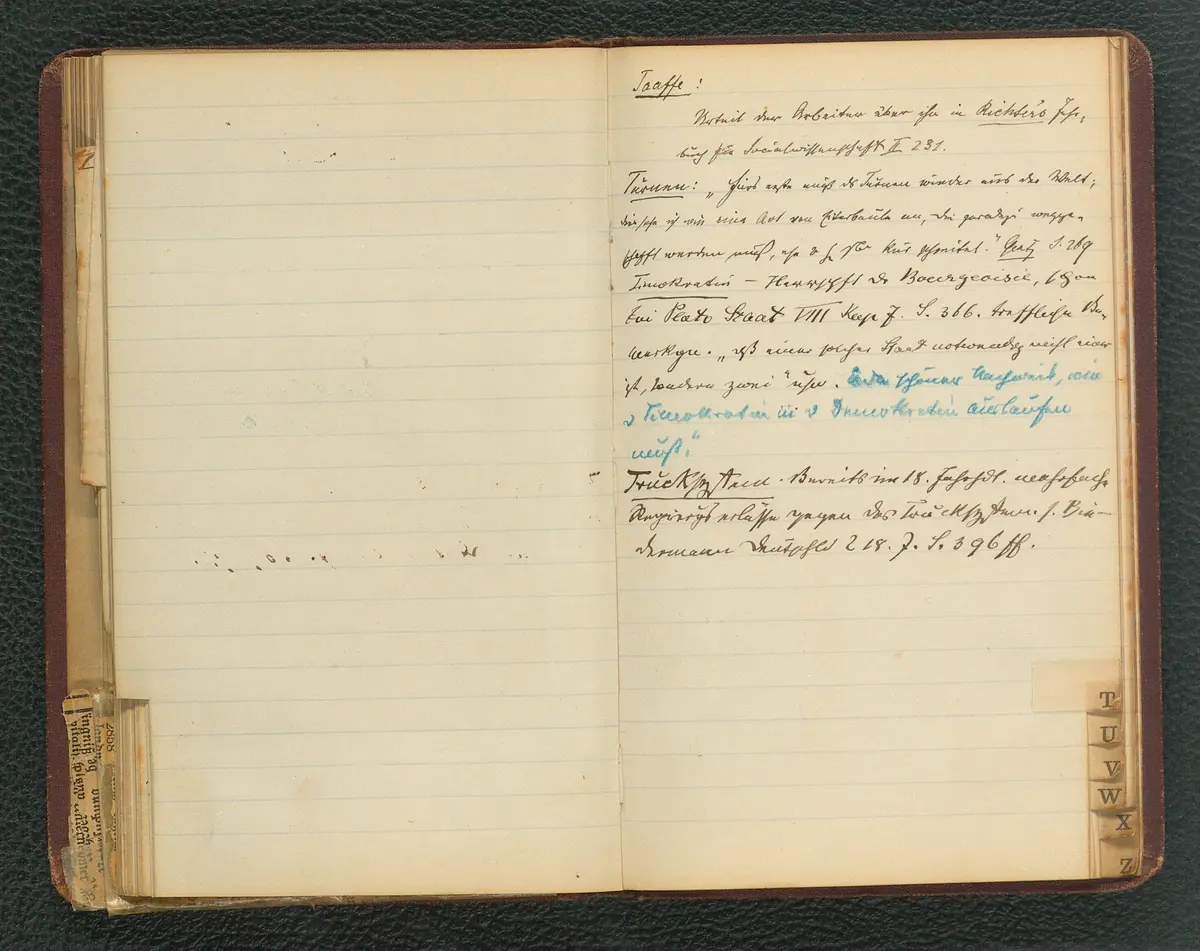 Taaffe:
Urteil der Arbeiter über ihn in Richters Jahr-
buch für Socialwissenschaft II 231.
Turnen: „Fürs erste muß ds Turnen wieder aus der Welt;
die sehe ich wie eine Art von Eiterbeule an, die geradezu wegge-
schafft werden muß, ehe Kur schreitet." S. 269
Timokratie – Herrschaft der Bourgeoisie, schon
bei Plato Staat VIII Kap 7. S. 366. treffliche Be-
merkgn. „dß einer solcher Staat notwendig nicht einer
ist, sondern zwei" usw. schöner Nachweis, wie
d Timokratie in d Demokratie auslaufen
muß."
Trucksystem. Bereits im 18. Jahrhdt. mehrfache
Regiergserlässe gegen das Trucksystem. s. Bie-
dermann Deutschld i 18. J. S. 396 ff.
T
U
V
W
X
Z